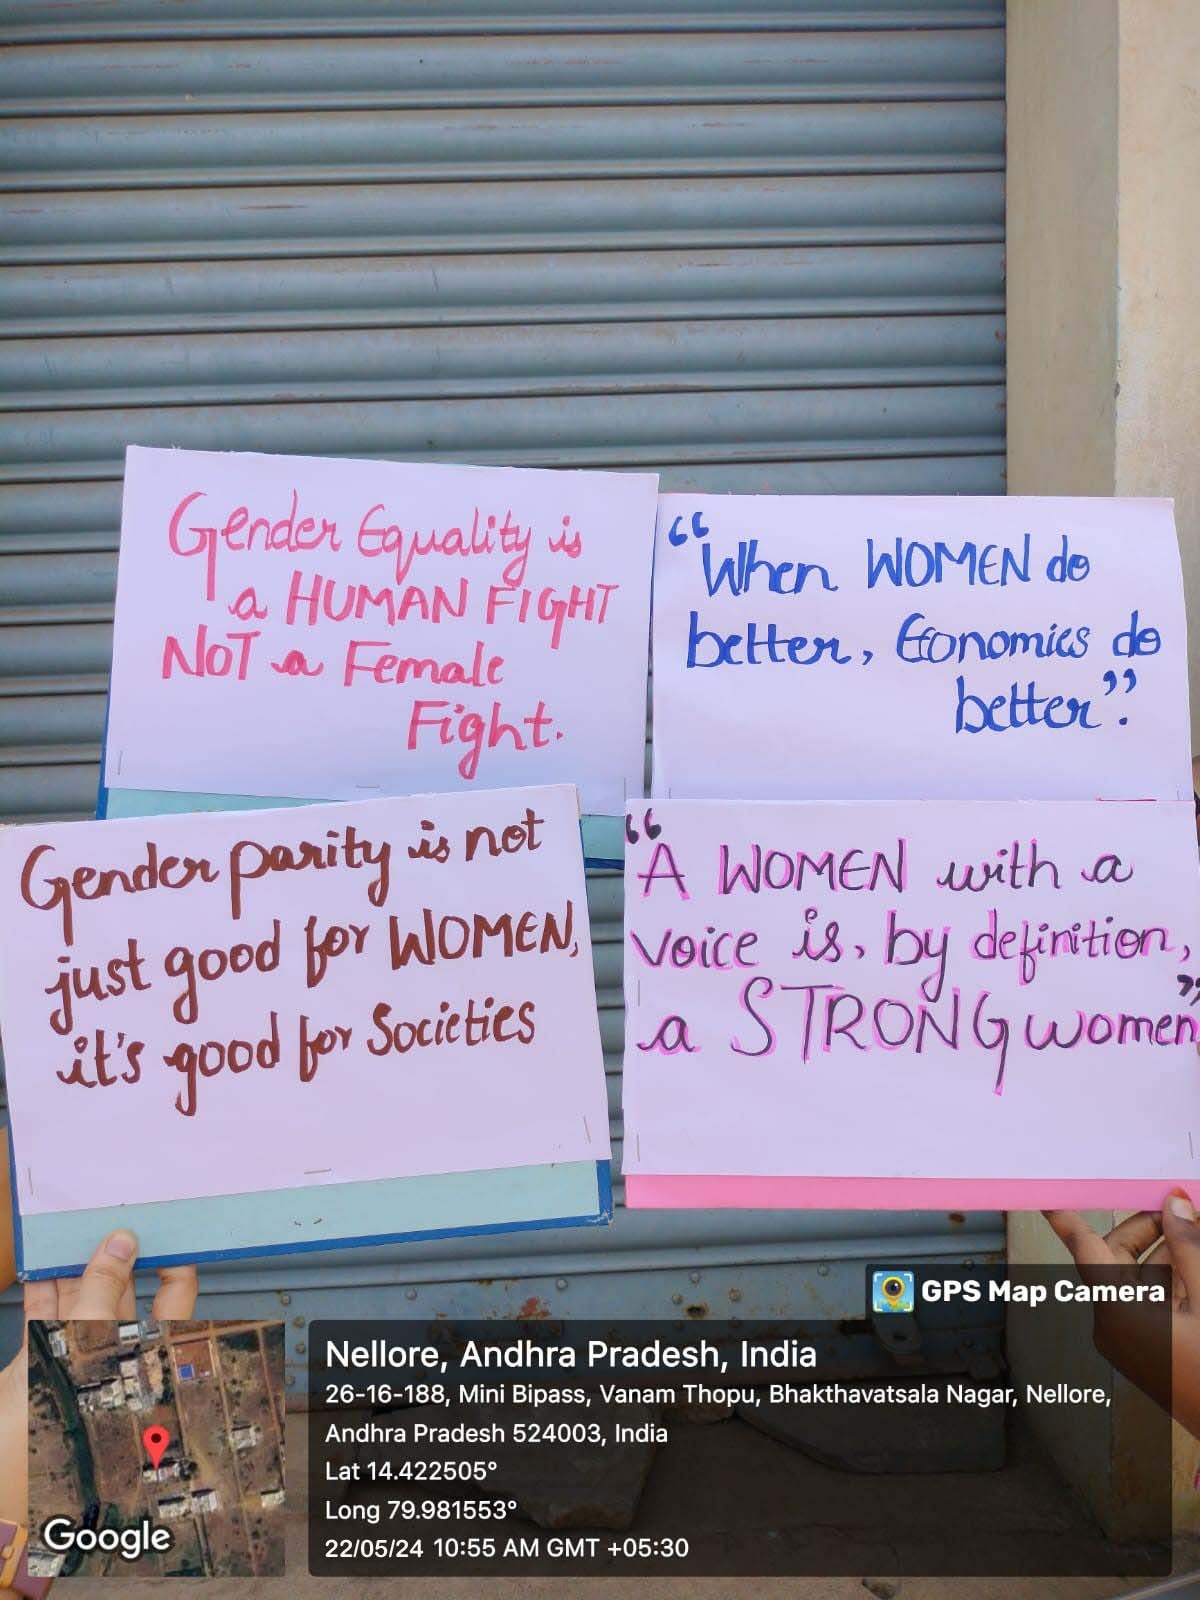 Gender Equality is
a HUMAN FIGHT
NOT a Female
Fight.
"When WOMEN do
better, Economics do
better".
Gender parity is not
just good for WOMEN,
it's good for Societies
"A WOMEN with a
voice is, by definition,
a STRONG women"
GPS Map Camera
Nellore, Andhra Pradesh, India
26-16-188, Mini Bipass, Vanam Thopu, Bhakthavatsala Nagar, Nellore,
Andhra Pradesh 524003, India
Lat 14.422505°
Long 79.981553°
22/05/24 10:55 AM GMT +05:30
Google